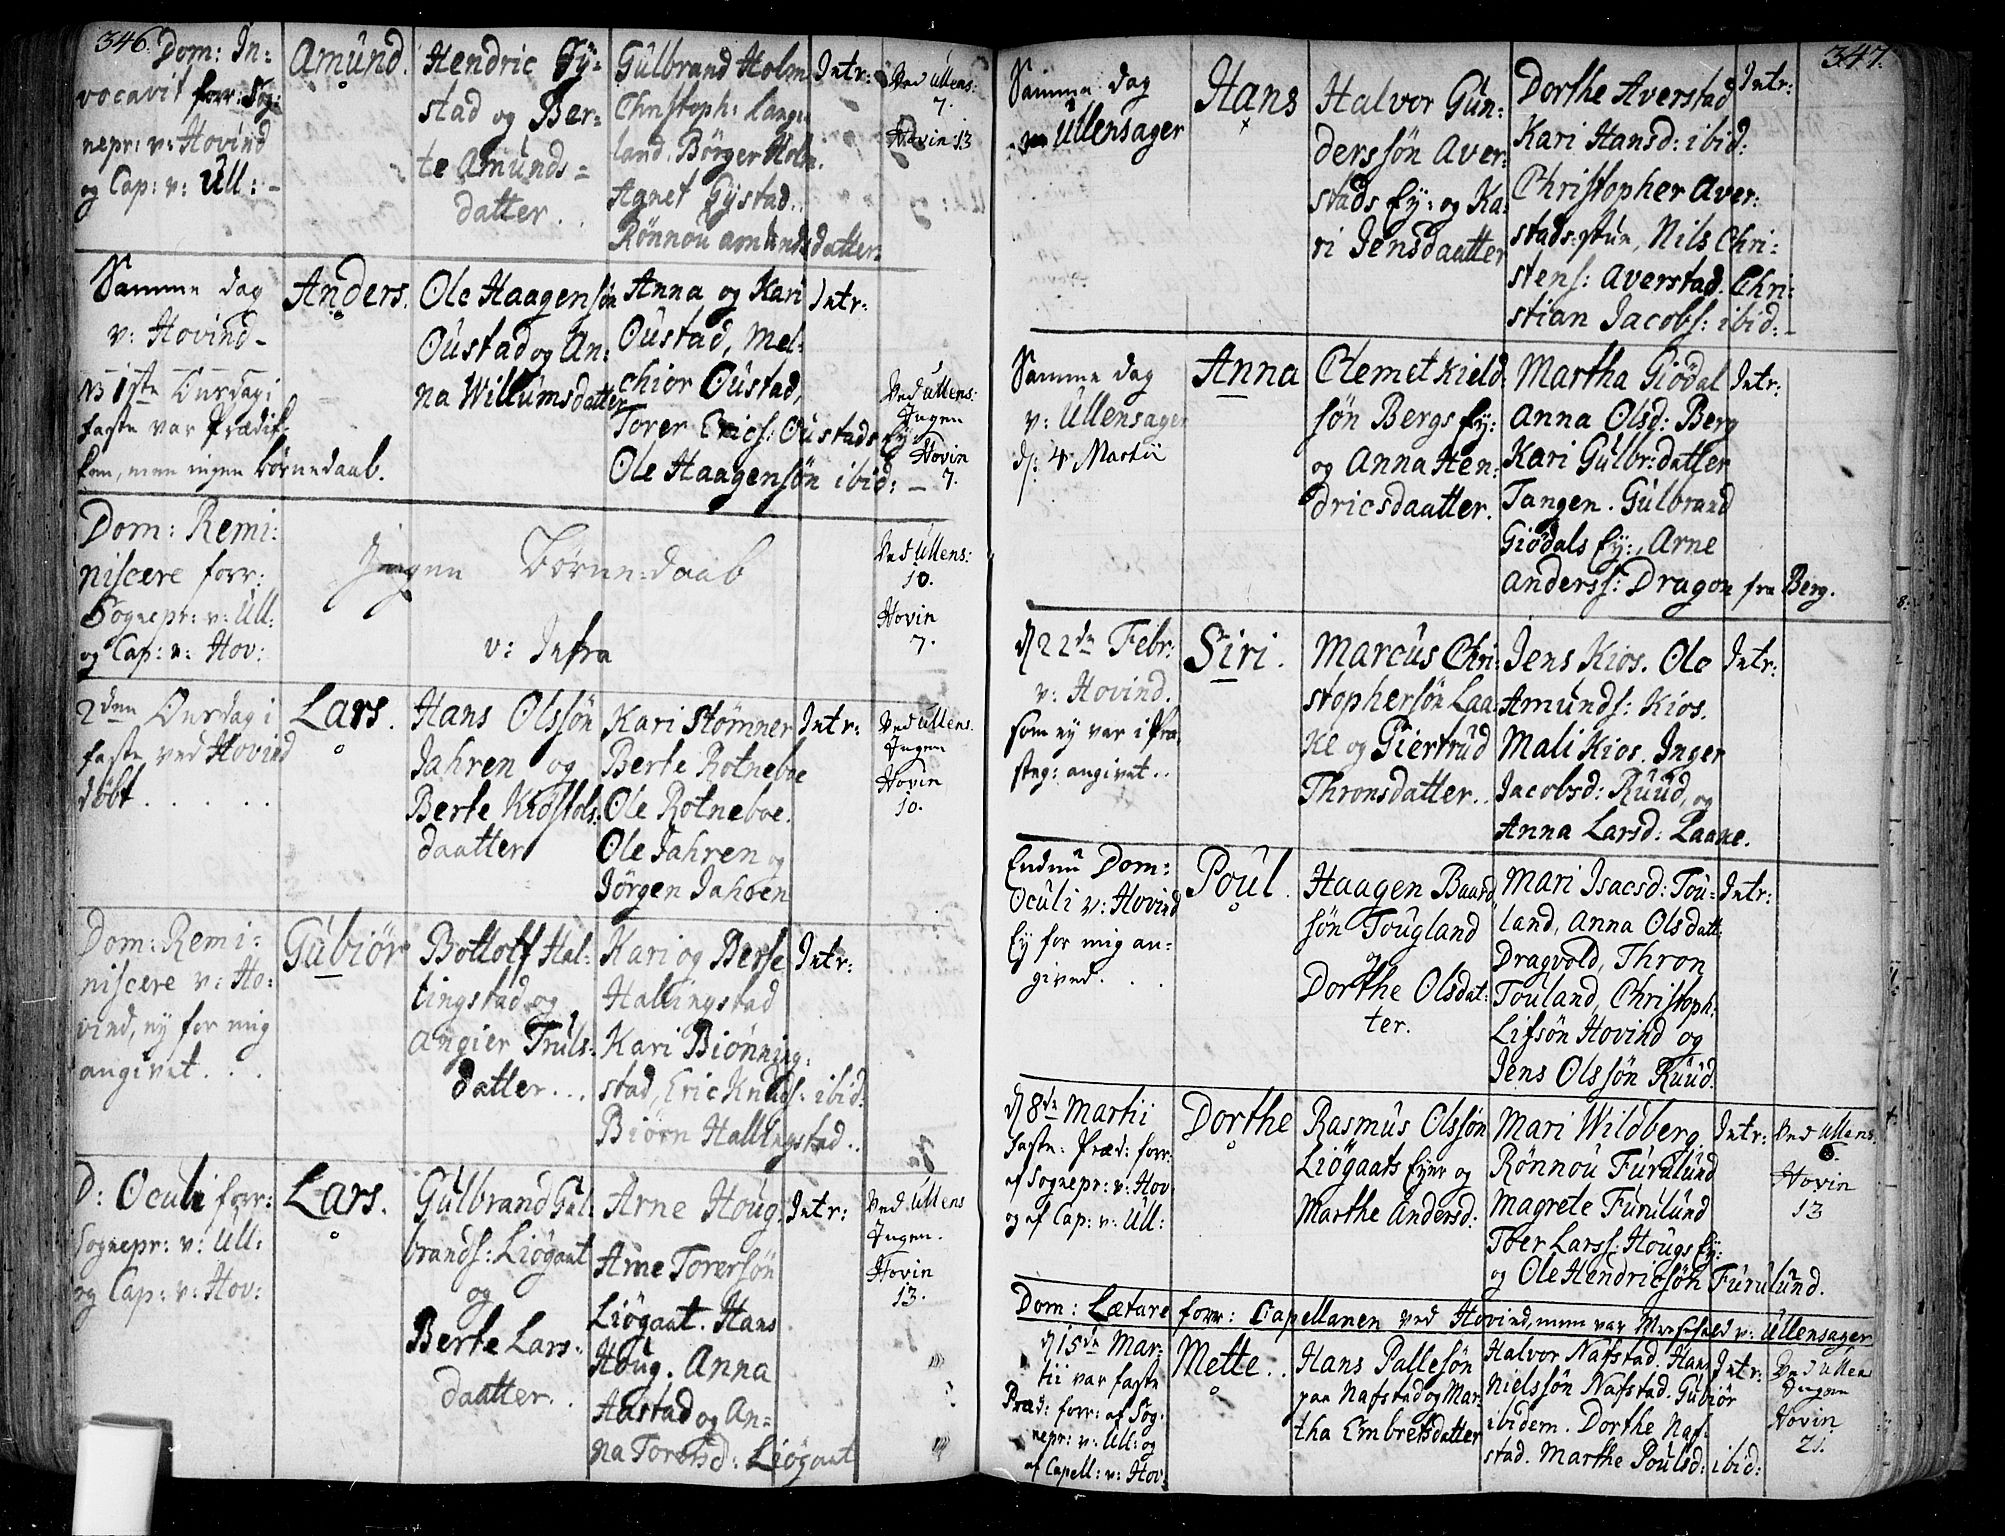 346.
Dom: In:
vocavit forr: Sog:
nepr: v: Hovind
og Cap: v: Ull: –
Amund.
Hendric Gy:
stad og Ber=
te Amunds=
datter.
Gulbrand Holm
Christoph: Lange
land. Börger Holm.
Agnet Gystad.
Rönnou Amundsdatter
Intr:
Ved Ullens:
7.
Hovin 13
Samme dag
v: Hovind –
NB 1ste Onsdag i
faste var Prædik
ken, men ingen börnedaab.
Anders.
Ole Haagensön
Oustad og An:
na Willumsdatter
Anna og Kari
Oustad, Mel:
chior Oustad,
Torer Erics: Oustads Ey:
Ole Haagensön ibid: –
Intr:
Ved Ullens:
Ingen
Hovin
7.
Dom: Remi:
niscere forr:
Sognepr: v: Ull:
og Cap: v: Hov:
Ingen Börne=daab
v: Infra
Ved Ullens:
10.
Hovin
7.
2den Onsdag i
faste ved Hovind
döbt . . . . .
Lars.
Hans Olssön
Jahren og
Berte Kiöstols:
daatter
Kari Stömner
Berte Rotneboe
Ole Rotneboe.
Ole Jahren og
Jörgen Jahren
Intr:
Ved Ullens.
Ingen
Hovin
10.
Dom: Remi:
niscere v: Ho:
vind, ey for mig
angivet . . .
Gubiör
Bottolf Hal:
tingstad og
Angier Truls:
datter...
Kari og Berte
Hallingstad
Kari Biönning:
stad, Eric Knuds: ibid:
Biörn Hallingstad..
Intr:
D: Oculi forr:
Sognepr: v: Ull:
og Cap: v: Hov:
Lars.
Gulbrand Gul:
brands: Liögaat
og
Berte Lars:
daatter..
Arne Houg.
Arne Torersön
Liögaat. Hans
Houg. Anna
Aastad og An=
na Torersd: Liögaat
Intr:
Ved Ullens
Ingen.
Hovin
13.
347.
Samme dag
ved Ullensager
Hans
Halvor Gun:
derssön Aver:
stads Ey: og Ka:
ri Jensdaatter
Dorthe Averstad
Kari Hansd: ibid:
Christopher Aver:
stads:stue, Nils Chri:
stens: Averstad. Chri:
stian Jacobs: ibid: –
Intr:
Samme dag
v: Ullensager
d: 4 Martii
Anna
Clemet Kield:
sön Bergs Ey:
og Anna Hen:
dricsdaatter.
Martha Giödal
Anna Olsd: Berg
Kari Gulbr:datter
Tangen. Gulbrand
Giödals Ey:, Arne
Anderss: Dragon fra Berg.
Intr:
d 22de Febr:
v: Hovind.
som ey var i Præ
steg: angivet..
Siri.
Marcus Chri:
stophersön Laa
ke og Giertrud
Thronsdatter..
Jens Kios. Ole
Amunds: Kios.
Mali Kios. Inger
Jacobsd: Ruud, og
Anna Larsd: Laane.
Intr:
Endnu Dom:
Oculi v: Hovind
Ey for mig an=
gived. . .
Poul.
Haagen Baard
sön Tougland
og
Dorthe Olsdat:
ter.
Mari Isacsd: Tou=
land, Anna Olsdatt:
Dragvold, Thron
Touland, Christoph:
Lifsön Hovind og
Jens Olssön Ruud.
Intr:
d 8de Martii
Faste: Præd: forr:
af Sognepr: v: Hov:
og af Cap: v: Ull:
Dorthe
Rasmus Olssön
Liögaats Eyer og
Marthe Andersd:
Mari Wildberg.
Rönnou Furulund
Magrete Furulund
Toer Larss: Hougs Ey:
og Ole Hendricsön Furulund.
Intr:
Ved Ullens.
6.
Hovin
13
Dom: Lætare forr: Capellanen ved Hovind, men var Messefald v: Ullensager
d 15de Mar:
tii var faste
Præd: forr: af Sog:
nepr: v: Ull: og
af Capell: v: Hov:
Mette..
Hans Pallesön
paa Nafstad og Mar:
tha Embretsdatter
Halvor Nafstad. Hans
Nielssön Nafstad. Gubiör
ibidem. Dorthe Naf=
stad. Marthe Poulsd: ibid:
Intr:
Ved Ullen
Ingen
Hovin
21.